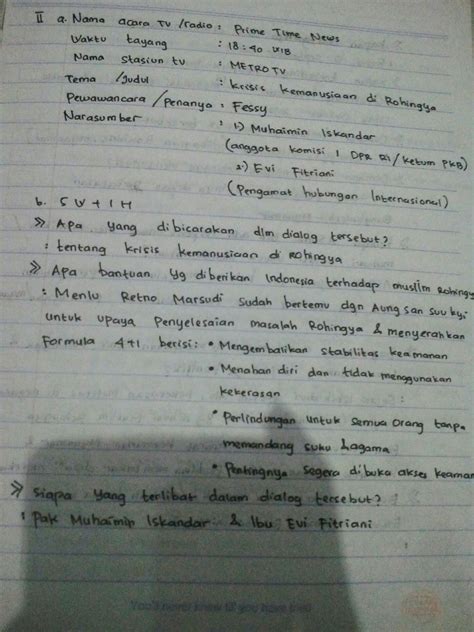 II a. Nama acara TV /radio : Prime Time News
Waktu tayang : 18:40 WIB
Nama stasiun tv : METRO TV
Tema /Judul : Krisis kemanusiaan di Rohingya
Pewawancara /Penanya : Fessy
Narasumber : 1) Muhaimin Iskandar
(anggota komisi 1 DPR RI/ketum PKB)
2) Evi Fitriani
(Pengamat hubungan Internasional)
b. 5W+1H
» Apa yang dibicarakan dlm dialog tersebut?
: tentang krisis kemanusiaan di Rohingya
» Apa bantuan yg diberikan Indonesia terhadap muslim Rohingy
: Menlu Retno Marsudi sudah bertemu dgn Aung san suu kyi
untuk upaya Penyelesaian masalah Rohingya & menyerahkan
Formula 4+1 berisi: • Mengembalikan stabilitas keamanan
• Menahan diri dan tidak menggunakan
kekerasan
• Perlindungan untuk semua orang tanpa
memandang suku & agama
• Pentingnya segera dibuka akses keaman
» Siapa yang terlibat dalam dialog tersebut?
: Pak Muhaimin Iskandar & Ibu Evi Fitriani
You'll never know till you have tried